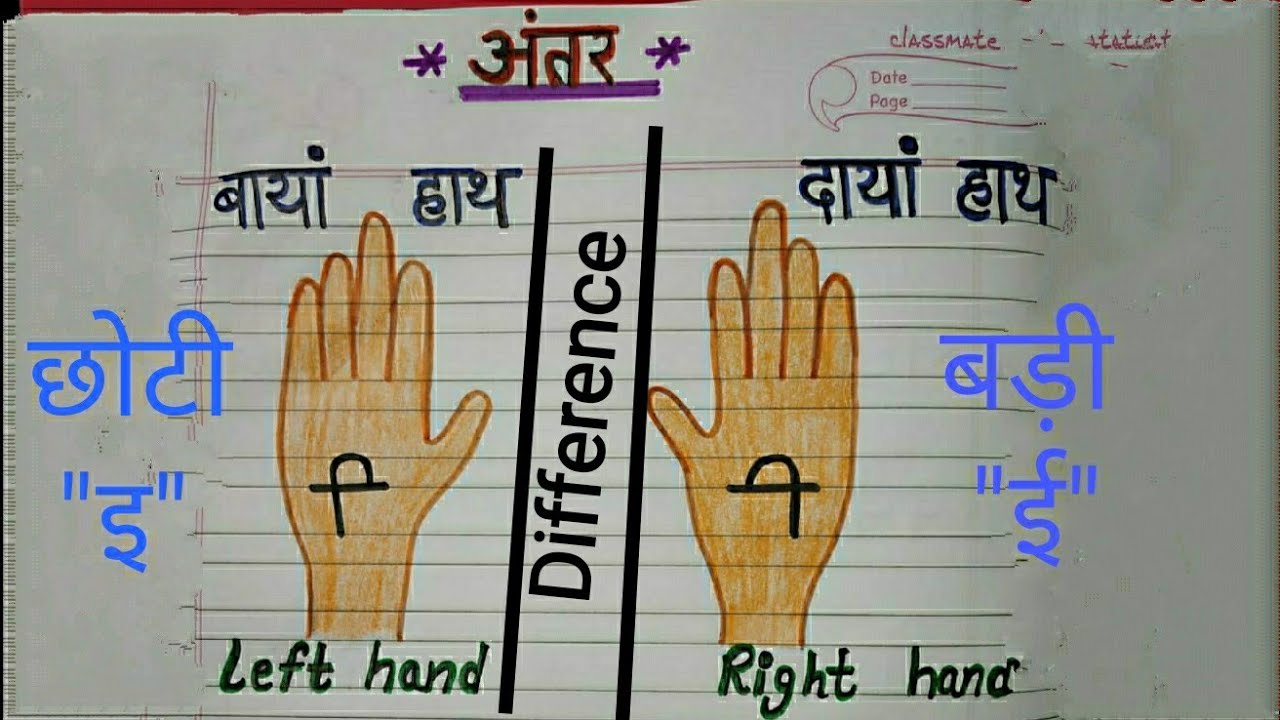 * अंतर *
classmate
Date
Page
बायां हाथ
दायां हाथ
Difference
छोटी
"इ"
बड़ी
"ई"
ि
ी
Left hand
Right hand